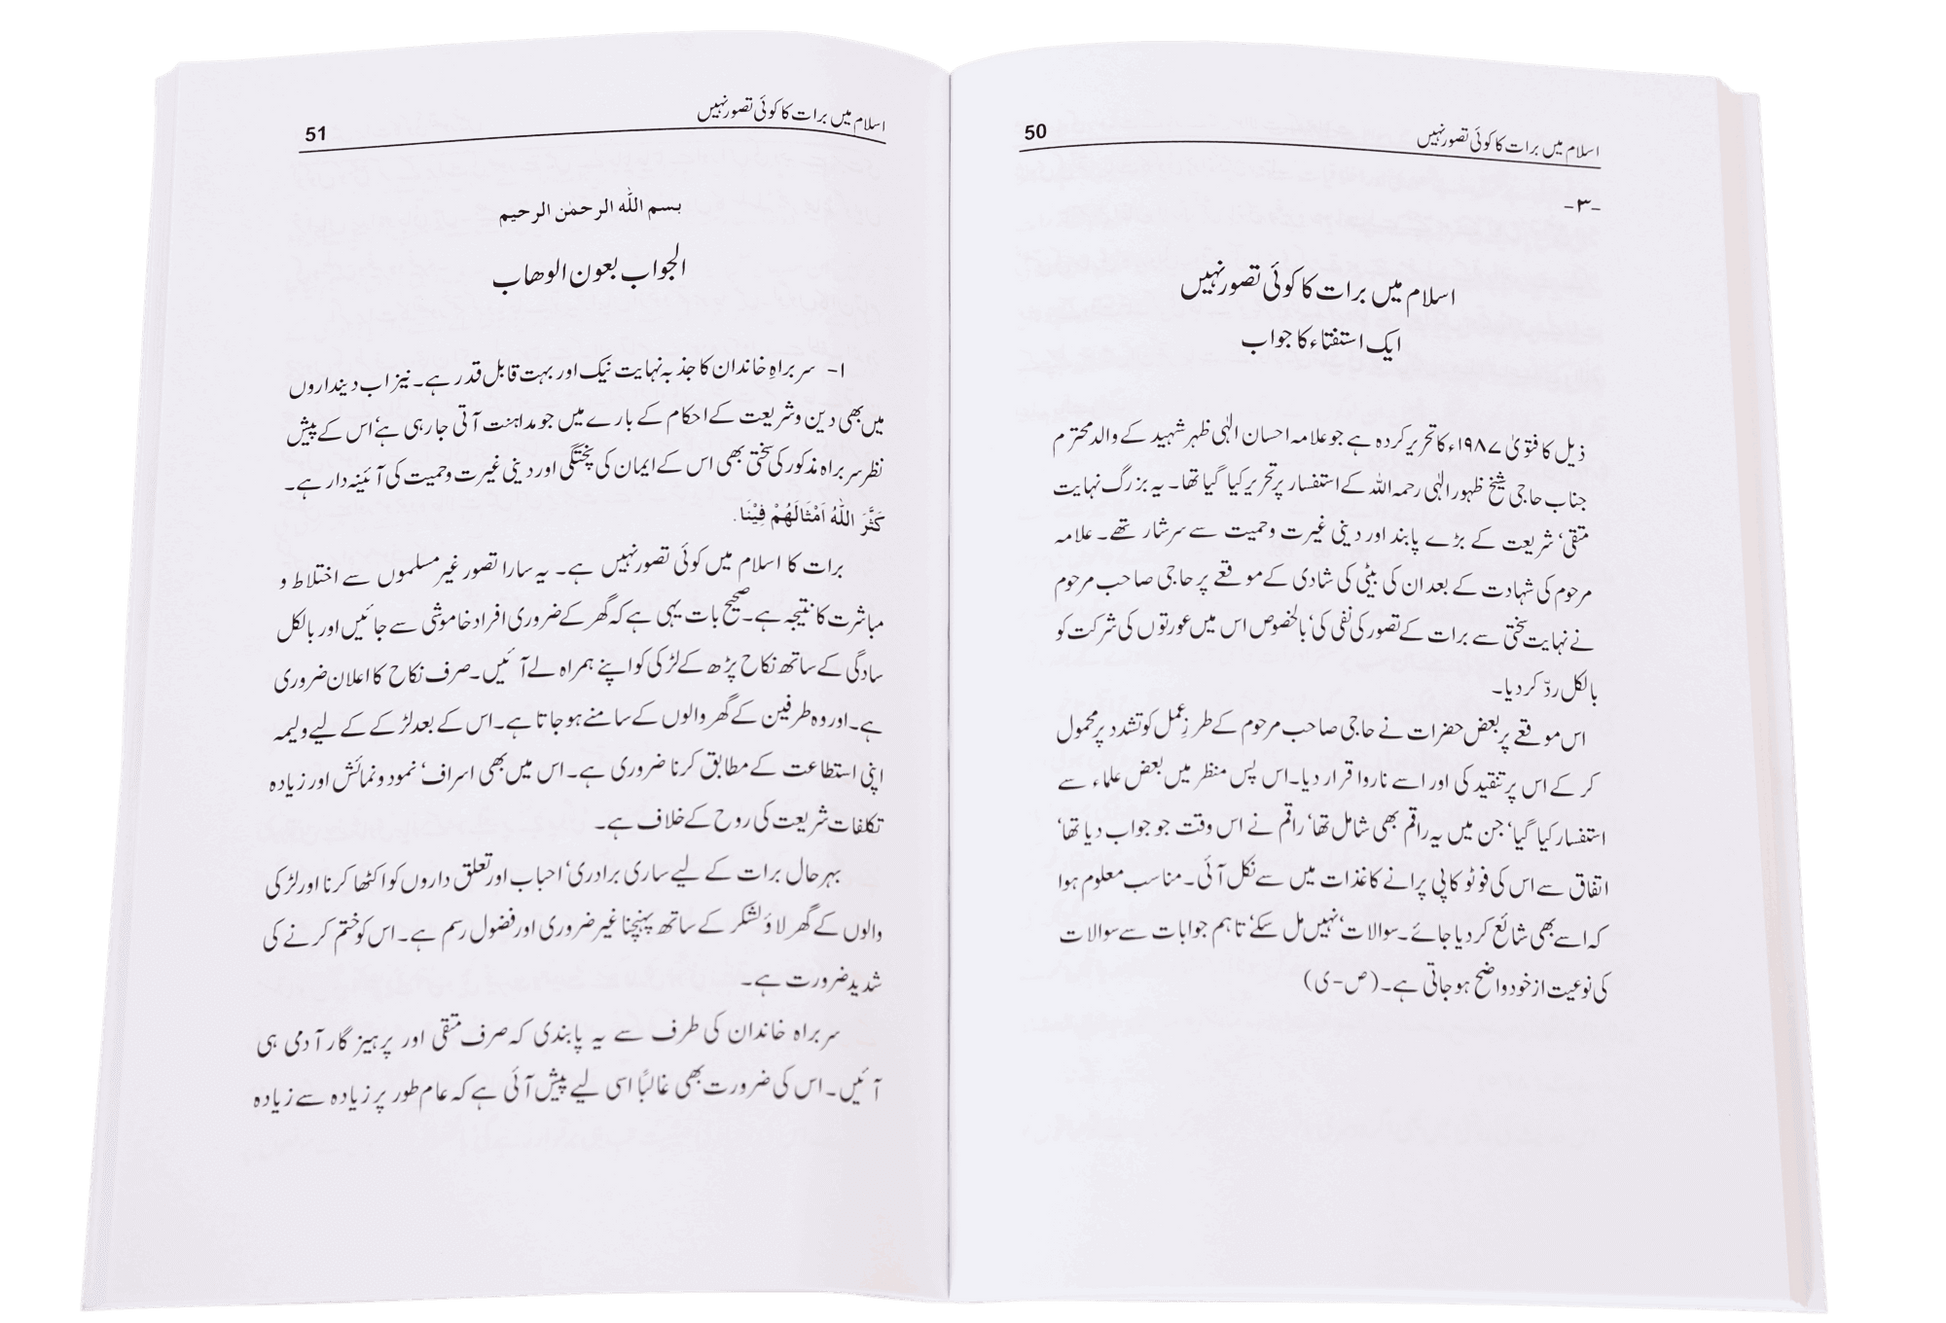 اسلام میں برات کا کوئی تصور نہیں
50
-۳-
اسلام میں برات کا کوئی تصور نہیں
ایک استفتاء کا جواب
ذیل کا فتویٰ ۱۹۸۷ء کا تحریر کردہ ہے جو علامہ احسان الٰہی ظہر شہید کے والد محترم
جناب حاجی شیخ ظہور الٰہی رحمہ اللہ کے استفسار پر تحریر کیا گیا تھا۔ یہ بزرگ نہایت
متقی‘ شریعت کے بڑے پابند اور دینی غیرت وحمیت سے سرشار تھے۔ علامہ
مرحوم کی شہادت کے بعد ان کی بیٹی کی شادی کے موقعے پر حاجی صاحب مرحوم
نے نہایت سختی سے برات کے تصور کی نفی کی‘ بالخصوص اس میں عورتوں کی شرکت کو
بالکل ردّ کر دیا۔
اس موقعے پر بعض حضرات نے حاجی صاحب مرحوم کے طرزِ عمل کو تشدد پر محمول
کر کے اس پر تنقید کی اور اسے ناروا قرار دیا۔ اس پس منظر میں بعض علماء سے
استفسار کیا گیا‘ جن میں یہ راقم بھی شامل تھا‘ راقم نے اس وقت جو جواب دیا تھا‘
اتفاق سے اس کی فوٹو کاپی پرانے کاغذات میں سے نکل آئی۔ مناسب معلوم ہوا
کہ اسے بھی شائع کر دیا جائے۔ سوالات‘ نہیں مل سکے‘ تاہم جوابات سے سوالات
کی نوعیت از خود واضح ہو جاتی ہے۔ (ص-ی)
اسلام میں برات کا کوئی تصور نہیں
51
بسم اللہ الرحمٰن الرحیم
الجواب بعون الوھاب
۱- سربراہِ خاندان کا جذبہ نہایت نیک اور بہت قابل قدر ہے۔ نیز اب دینداروں
میں بھی دین وشریعت کے احکام کے بارے میں جو مداہنت آتی جا رہی ہے‘ اس کے پیش
نظر سربراہ مذکور کی سختی بھی اس کے ایمان کی پختگی اور دینی غیرت وحمیت کی آئینہ دار ہے۔
کَثَّرَ اللّٰہُ اَمْثَالَھُمْ فِیْنَا.
برات کا اسلام میں کوئی تصور نہیں ہے۔ یہ سارا تصور غیر مسلموں سے اختلاط و
مباشرت کا نتیجہ ہے۔ صحیح بات یہی ہے کہ گھر کے ضروری افراد خاموشی سے جائیں اور بالکل
سادگی کے ساتھ نکاح پڑھ کے لڑکی کو اپنے ہمراہ لے آئیں۔ صرف نکاح کا اعلان ضروری
ہے۔ اور وہ طرفین کے گھر والوں کے سامنے ہو جاتا ہے۔ اس کے بعد لڑکے کے لیے ولیمہ
اپنی استطاعت کے مطابق کرنا ضروری ہے۔ اس میں بھی اسراف‘ نمود ونمائش اور زیادہ
تکلفات شریعت کی روح کے خلاف ہے۔
بہرحال برات کے لیے ساری برادری‘ احباب اور تعلق داروں کو اکٹھا کرنا اور لڑکی
والوں کے گھر لاؤ لشکر کے ساتھ پہنچنا غیر ضروری اور فضول رسم ہے۔ اس کو ختم کرنے کی
شدید ضرورت ہے۔
سربراہ خاندان کی طرف سے یہ پابندی کہ صرف متقی اور پرہیز گار آدمی ہی
آئیں۔ اس کی ضرورت بھی غالبًا اسی لیے پیش آئی ہے کہ عام طور پر زیادہ سے زیادہ